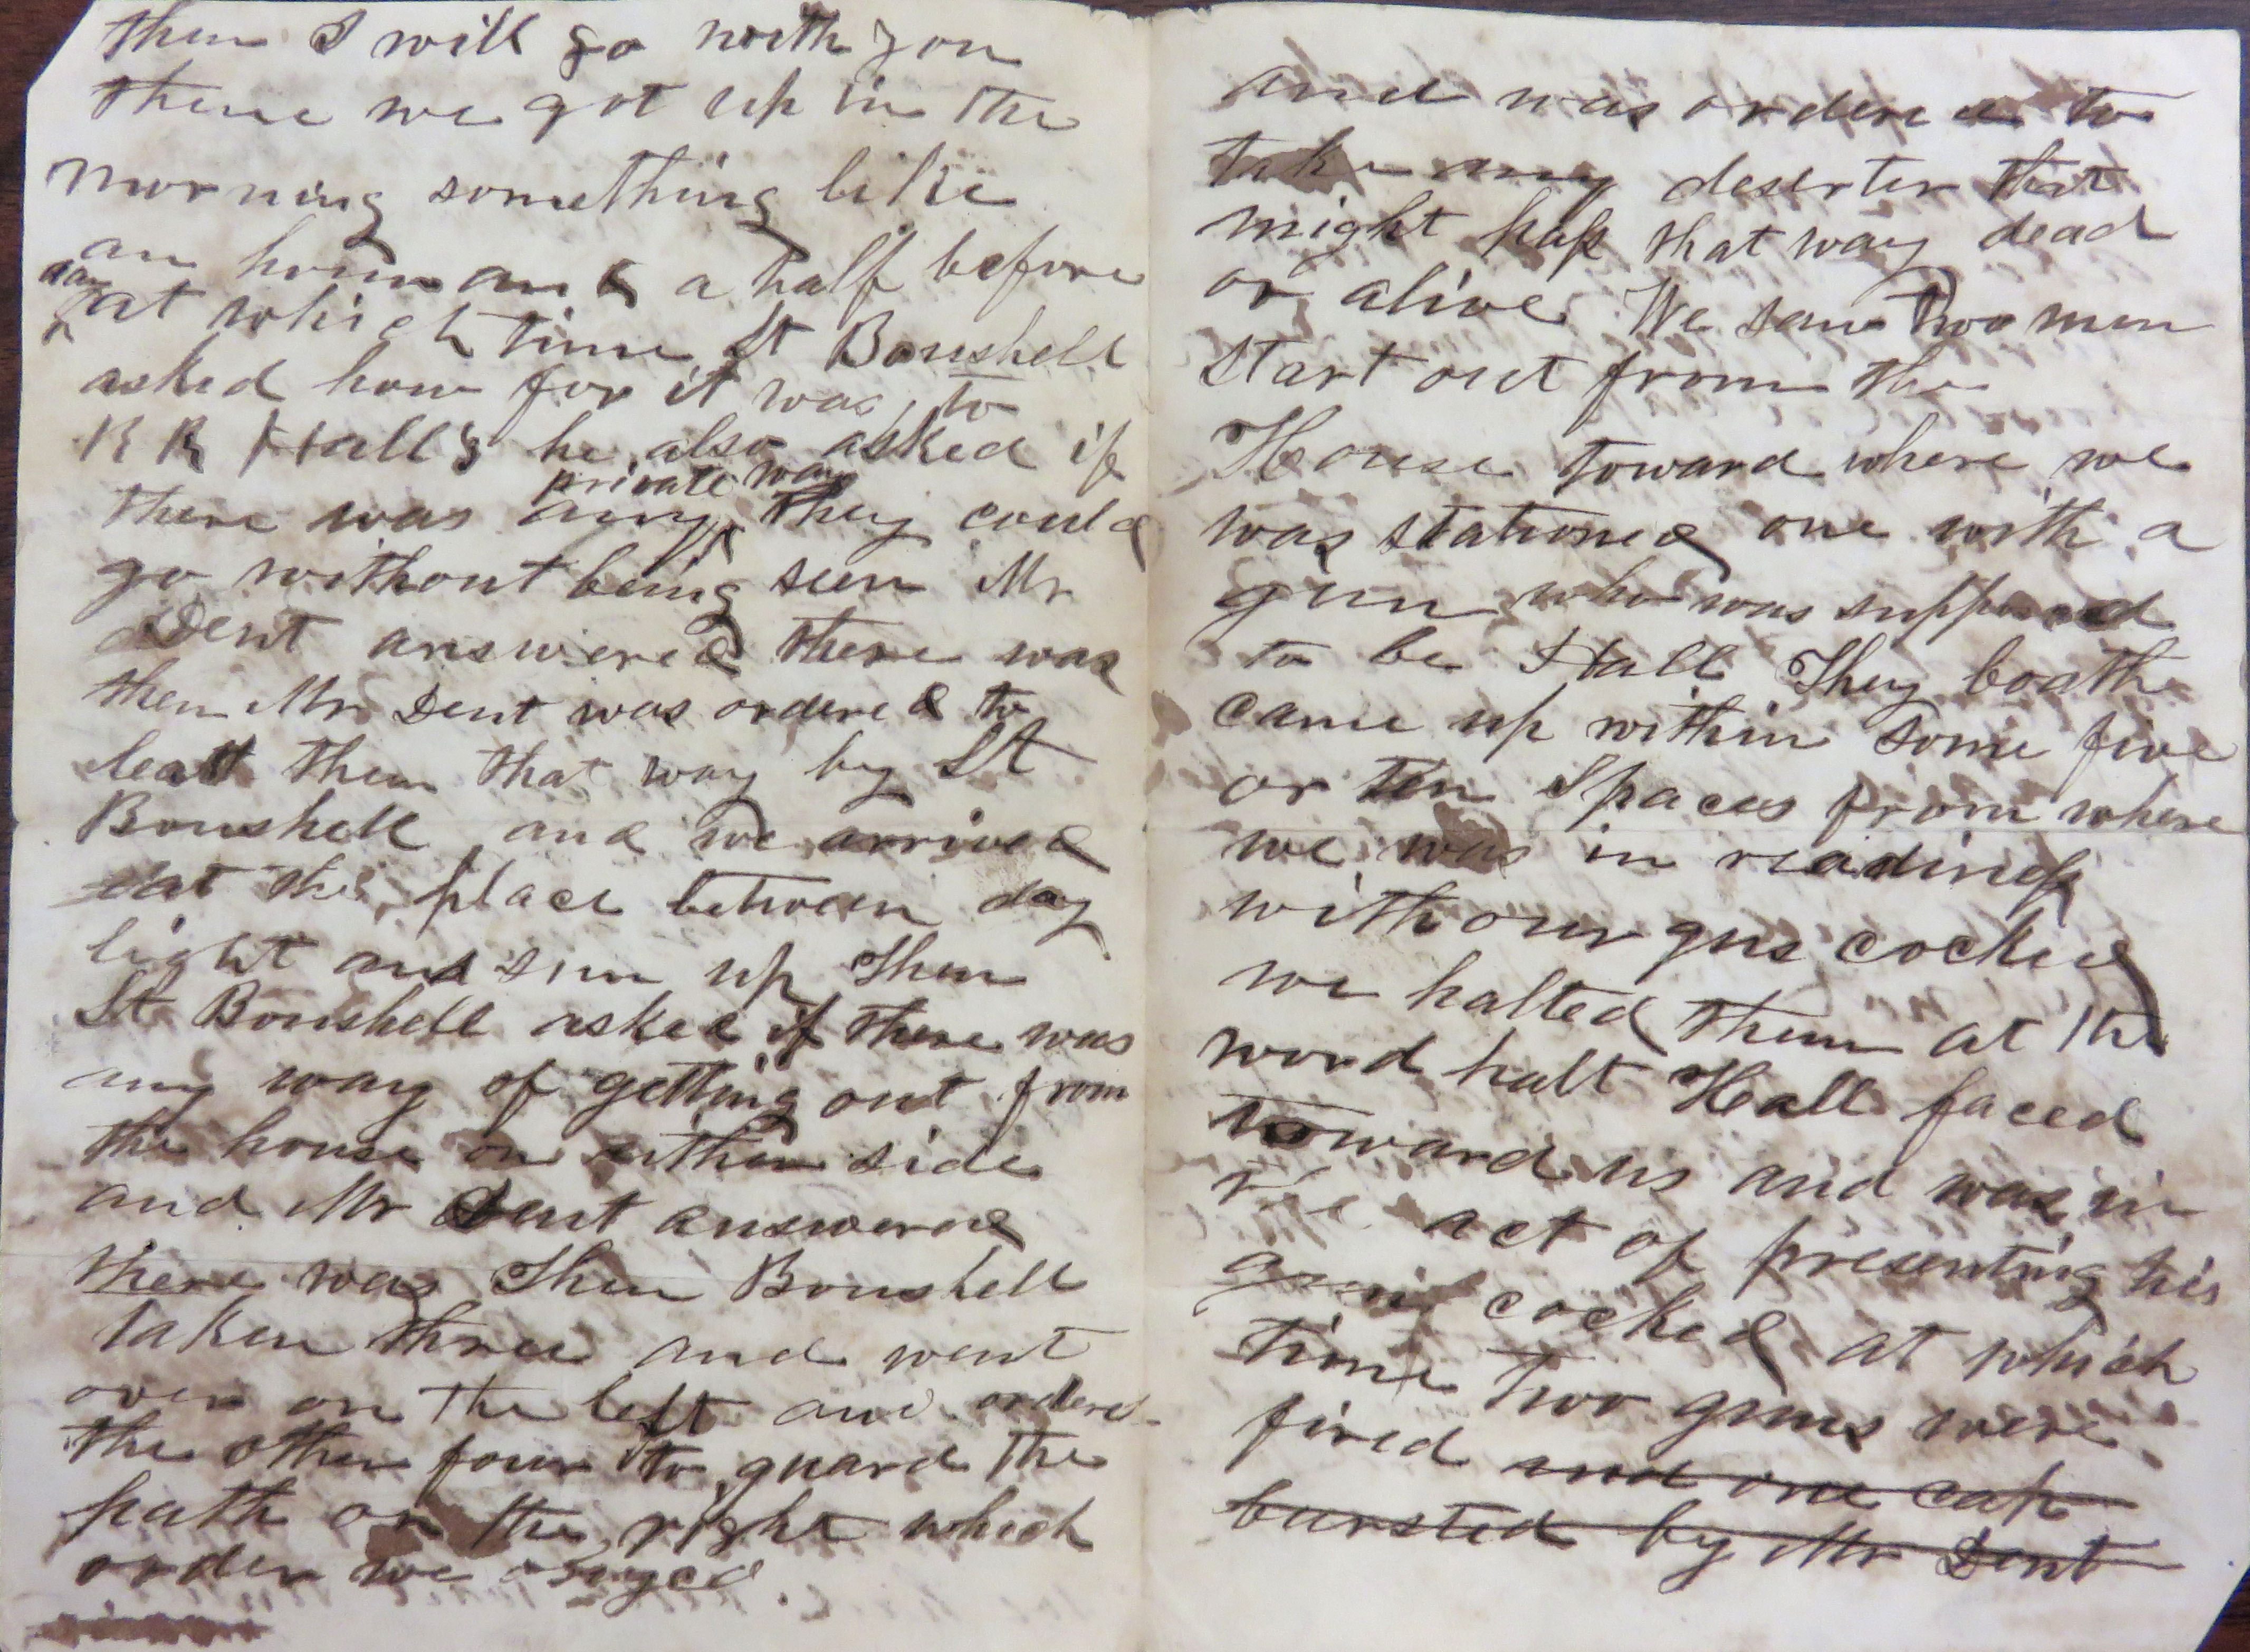 then I will go with you
thene we got up in the
morning something like
an hour and a half before
day at which time Lt Boushell
asked how for it was to
R R Hall's he also asked if
there was any private way they could
go without being seen Mr
Dent answered there was
then Mr Dent was ordered to
lead them that way by Lt
Boushell and we arrived
at the place between day
light and sun up Then
Lt Boushell asked if there was
any way of getting out from
the house on either side
and Mr Dent answered
there was Then Boushell
taken three and went
over on the left and ordered
the other four to guard the
path on the right which
order we obayed.
and was ordered to
take any deserter that
might pass that way dead
or alive We saw two men
start out from the
House toward where we
was stationed one with a
gun who was supposed
to be Hall They boath
came up within some five
or ten Spaces from where
we was in readiness
with our guns cocked
we halted them at the
word halt Hall faced
toward us and was in
the act of presenting his
gun cocked at which
time two guns were
fired and one cap
bursted by Mr Dent